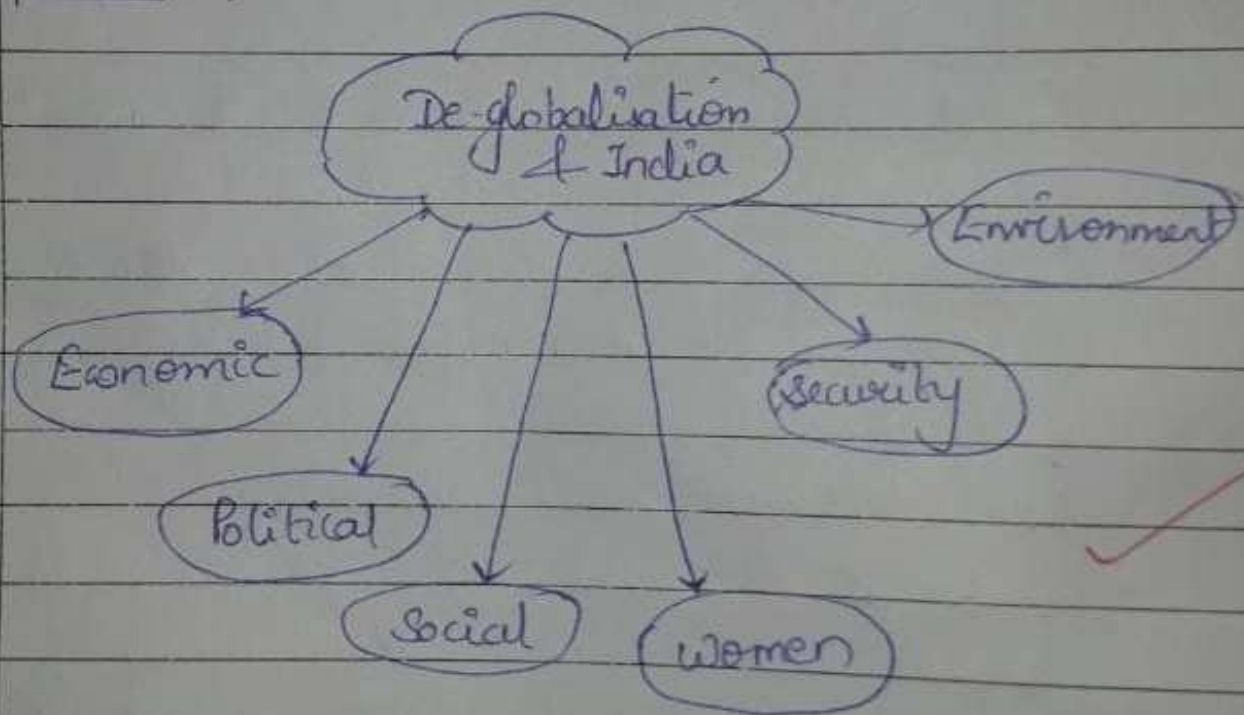 De-globalisation
& India
Environment
Economic
Security
Political
Social
Women